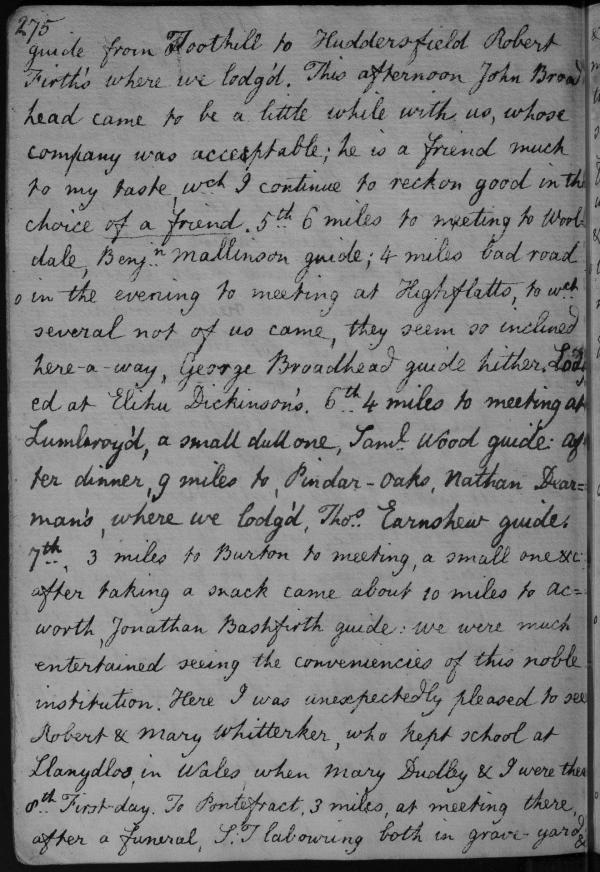 275
guide from Toothill to Huddersfield Robert
Firth's where we lodg'd. This afternoon John Broad
head came to be a little while with us, whose
company was acceptable; he is a friend much
to my taste, wch I continue to reckon good in the
choice of a friend. 5th 6 miles to meeting to Wool-
dale, Benjn Mallinson guide; 4 miles bad road
o in the evening to meeting at Highflatts, to wch
several not of us came, they seem so inclined
here-a-way, George Broadhead guide hither. Lodg
ed at Elihu Dickinson's. 6th 4 miles to meeting at
Lumbroy'd, a small dull one, Saml Wood guide: af
ter dinner, 9 miles to, Pindar-Oaks, Nathan Dear=
man's, where we lodg'd, Thos Earnshew guide.
7th, 3 miles to Burton to meeting, a small one &c:
after taking a snack came about 10 miles to Ac=
worth, Jonathan Bashfirth guide: we were much
entertained seeing the conveniencies of this noble
institution. Here I was unexpectedly pleased to see
Robert & Mary Whitterker, who kept school at
Llanydlos, in Wales when Mary Dudley & I were there
8th First-day. To Pontefract, 3 miles, at meeting there,
after a funeral, S:T labouring both in grave-yard &